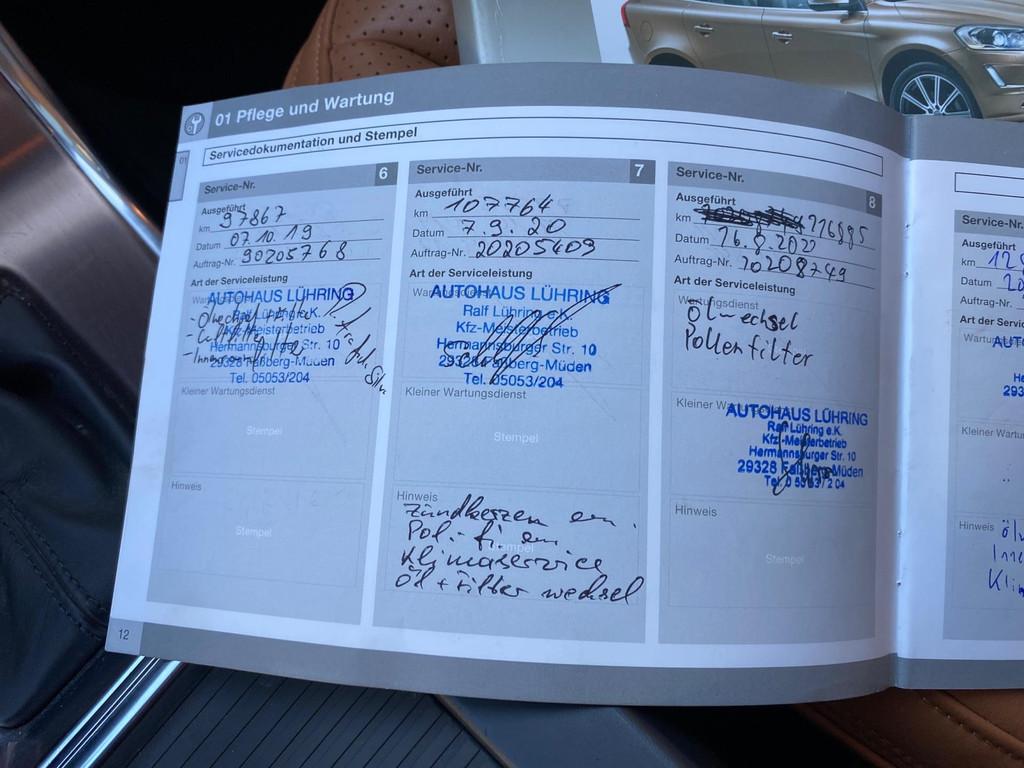 01 Pflege und Wartung
01
Servicedokumentation und Stempel
Service-Nr. 6
Ausgeführt
km 97867
Datum 07.10.19
Auftrag-Nr. 90205768
Art der Serviceleistung
AUTOHAUS LÜHRING
Ralf Lühring e.K.
Kfz-Meisterbetrieb
Hermannsburger Str. 10
29328 Faßberg-Müden
Tel. 05053/204
Kleiner Wartungsdienst
Stempel
Hinweis
Stempel
12
Service-Nr. 7
Ausgeführt
km 107764
Datum 7.9.20
Auftrag-Nr. 20205409
Art der Serviceleistung
Wartungsdienst
AUTOHAUS LÜHRING
Ralf Lühring e.K.
Kfz-Meisterbetrieb
Hermannsburger Str. 10
29328 Faßberg-Müden
Tel. 05053/204
Kleiner Wartungsdienst
Stempel
Hinweis
Zündkerzen ern.
Pol.-fi ern
Klimaservice
Öl + Filter wechsel
Service-Nr. 8
Ausgeführt
km 116885
Datum 16.8.2022
Auftrag-Nr. 20208749
Art der Serviceleistung
Wartungsdienst
Ölwechsel
Pollenfilter
Kleiner
AUTOHAUS LÜHRING
Ralf Lühring e.K.
Kfz-Meisterbetrieb
Hermannsburger Str. 10
29328 Faßberg-Müden
Tel. 05053/204
Hinweis
Stempel
Service-Nr.
Ausgeführt
km
Datum
Auftrag-N
Art der Servi
Kleiner Wartu
Hinweis